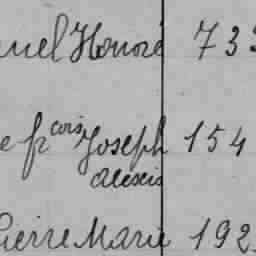 nuel Honoré 733
e fcois Joseph 154
alexis
Pierre Marie 192